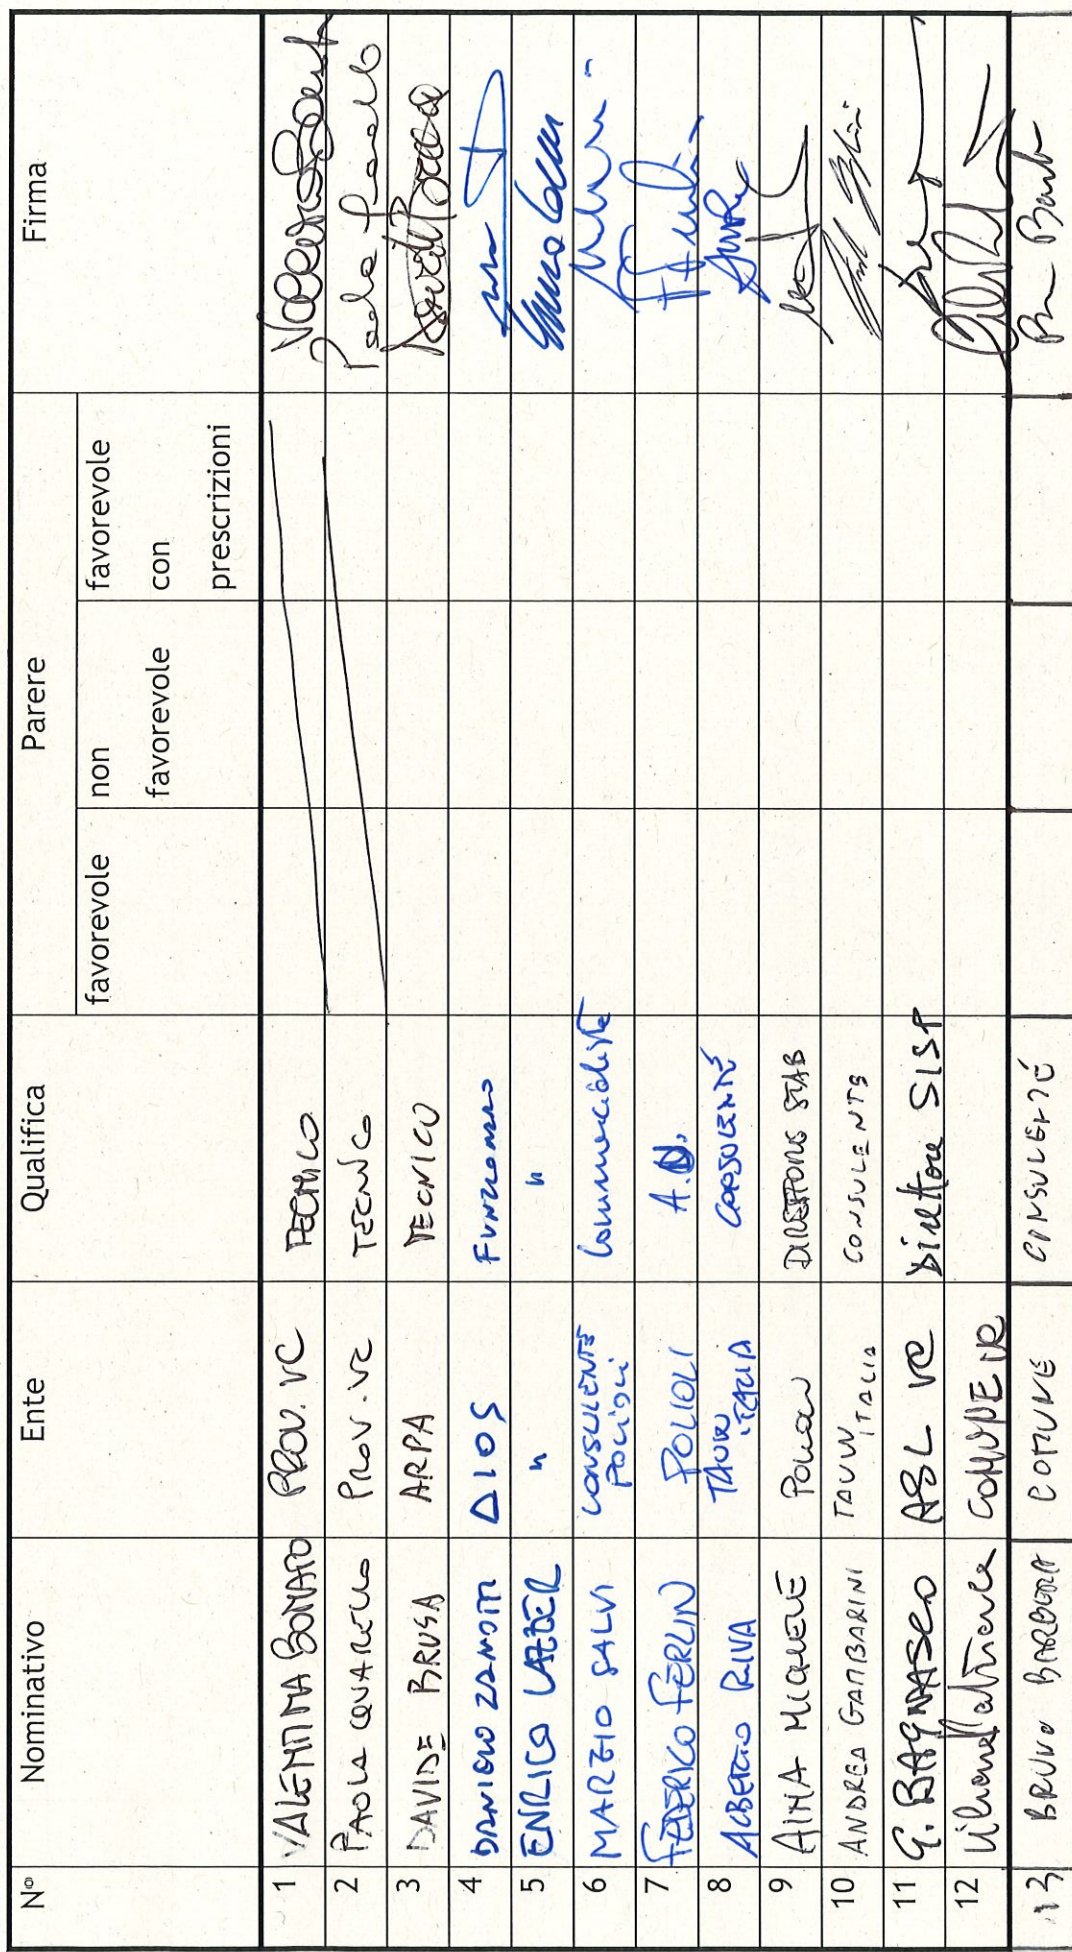 N° Nominativo Ente Qualifica Parere Firma
favorevole non favorevole con prescrizioni favorevole
1 VALENTINA BONATO PROV. VC TECNICO
2 PAOLA QUARELLO PROV. VC TECNICO
3 DAVIDE BRUSA ARPA TECNICO
4 DANILO ZANOTTI DIOS FUNZIONARIO
5 ENRICO "  "
6 MARZIO SALVI CONSULENTE POLIOLI Commercialista
7 FEDERICO FERLIN POLIOLI A.D.
8 ALBERTO RIVA TAUW ITALIA CONSULENTE
9 AINA MICHELE POLIOLI DIRETTORE STAB
10 ANDREA GAMBARINI TAUW ITALIA CONSULENTE
11 G. BAGNASCO ASL VC Direttore SISP
12 COMUNE VC
13 BRUNO BARBERO COMUNE CONSULENTE